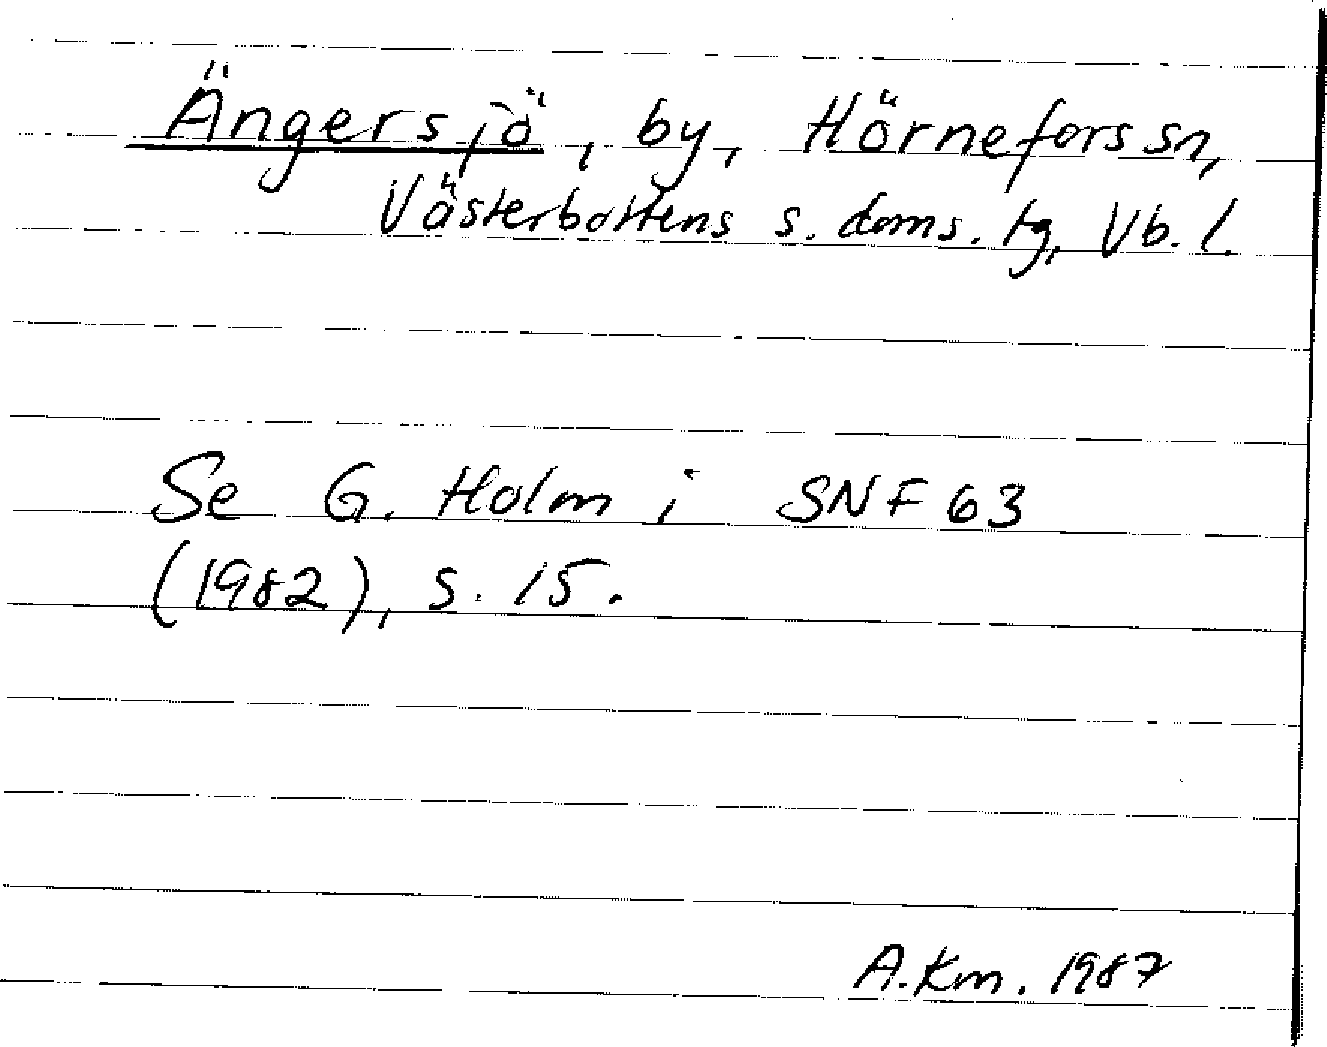 Ängersjö, by, Hörnefors sn,
Västerbottens s. doms. tg, Vb. l.
Se G. Holm i SNF 63
(1982), s. 15.
A.Km. 1987